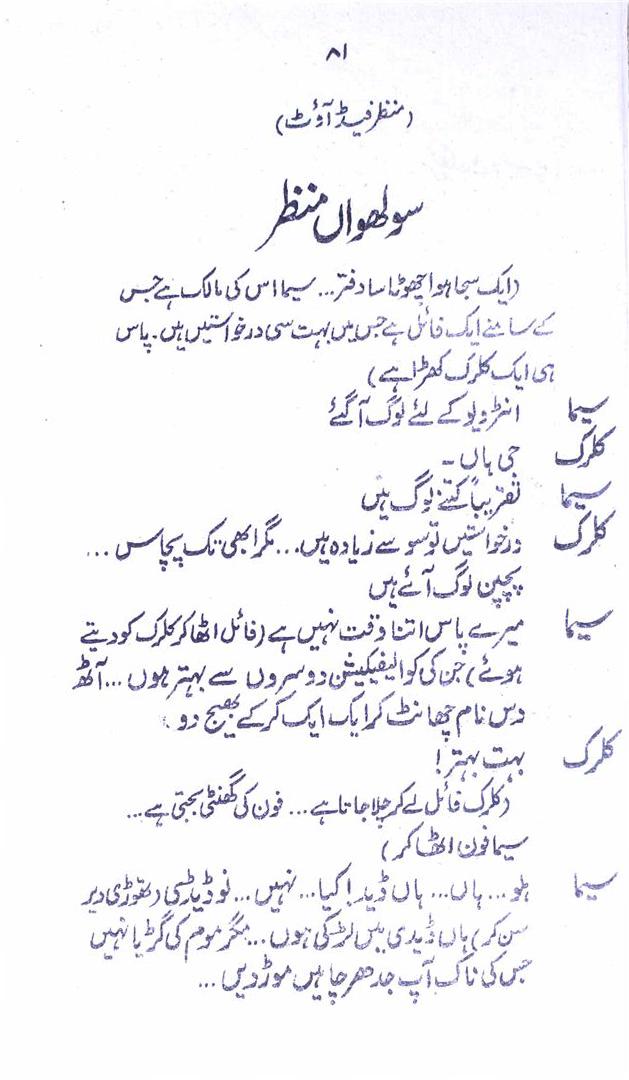 ۸۱
(منظر فیڈ آؤٹ)
سولھواں منظر
(ایک سجا ہوا چھوٹا سا دفتر... سیما اس کی مالک ہے جس
کے سامنے ایک فائل ہے جس میں بہت سی درخواستیں ہیں۔ پاس
ہی ایک کلرک کھڑا ہے)
سیما انٹرویو کے لئے لوگ آ گئے
کلرک جی ہاں۔
سیما تقریباً کتنے لوگ ہیں
کلرک درخواستیں تو سو سے زیادہ ہیں... مگر ابھی تک پچاس...
پچپن لوگ آئے ہیں
سیما میرے پاس اتنا وقت نہیں ہے (فائل اٹھا کر کلرک کو دیتے
ہوئے) جن کی کوالیفیکیشن دوسروں سے بہتر ہوں... آٹھ
دس نام چھانٹ کر ایک ایک کر کے بھیج دو۔
کلرک بہت بہتر!
(کلرک فائل لے کر چلا جاتا ہے... فون کی گھنٹی بجتی ہے...
سیما فون اٹھا کر)
سیما ہلو... ہاں... ہاں ڈیڈ! کیا... نہیں... نو ڈیڈسی (تھوڑی دیر
سن کر) ہاں ڈیڈی میں لڑکی ہوں... مگر موم کی گڑیا نہیں
جس کی ناک آپ جدھر چاہیں موڑ دیں...